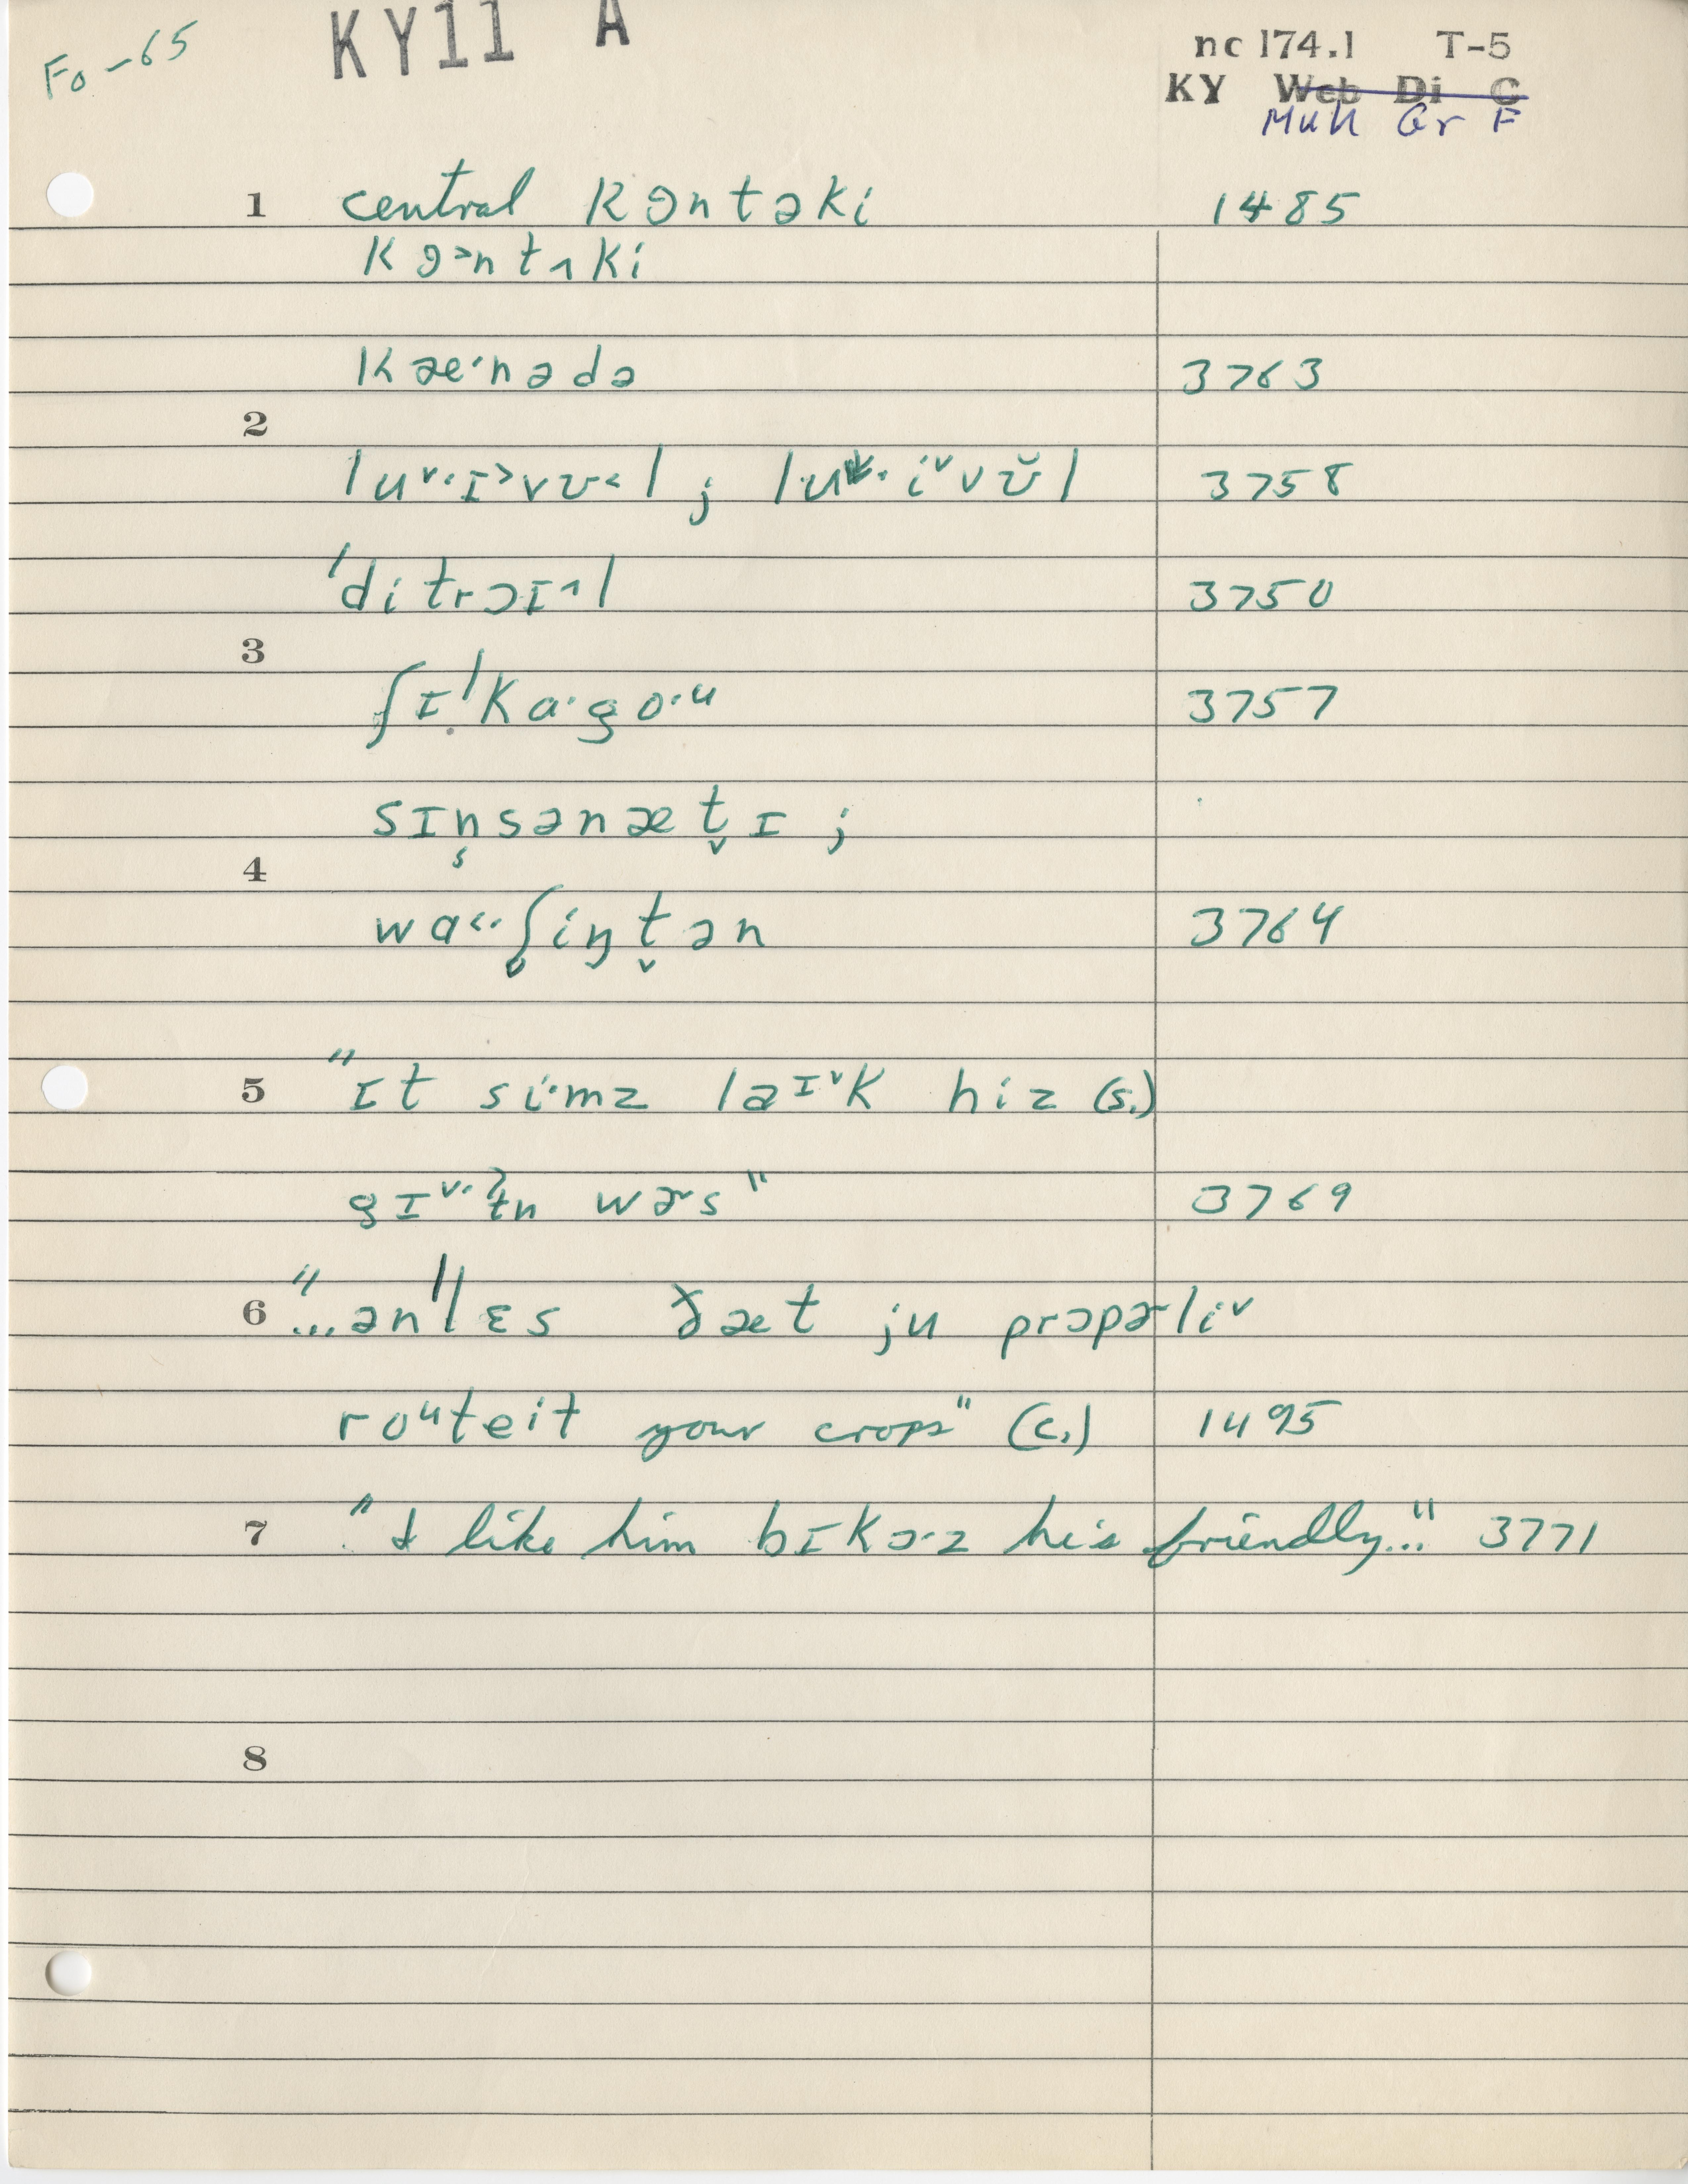 Fo-65 KY11 A nc 174.1 T-5
KY Web Di C
Muh Gr F
1 central kəntəki 1485
kə˃ntʌki
kæ·nədə 3763
2
luˇ·ɪ˃vʊ˂l ; lu·iˇvʊ̆l 3758
ˈditrɔɪ^l 3750
3
ʃɪˈka·go·u 3757
sɪn̬sənæt̬ɪ ;
4
wɑ˂·ʃiŋt̬ən 3764
5 "ɪt si·mz laɪˇk hiz (s.)
gɪˇ·ʔtn wɚs" 3769
6 "...ənˈlɛs ðæt ju prɔpɚliˇ
roᵘteit your crops" (c.) 1495
7 "I like him bɪkɔ·z he's friendly..." 3771
8